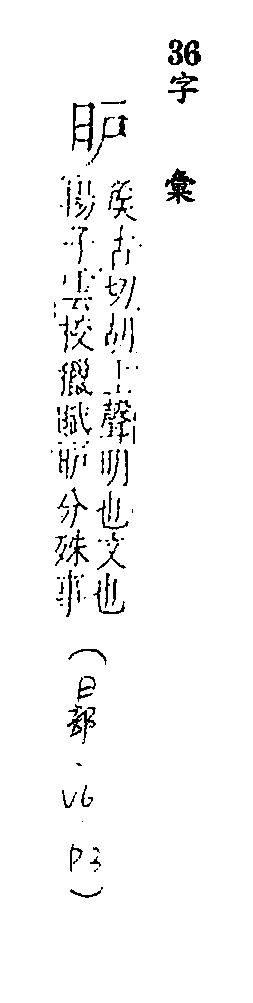 36字彙
昈
矦古切胡上聲明也文也
揚子雲校獵賦昈分殊事
(日部.V6.P3)